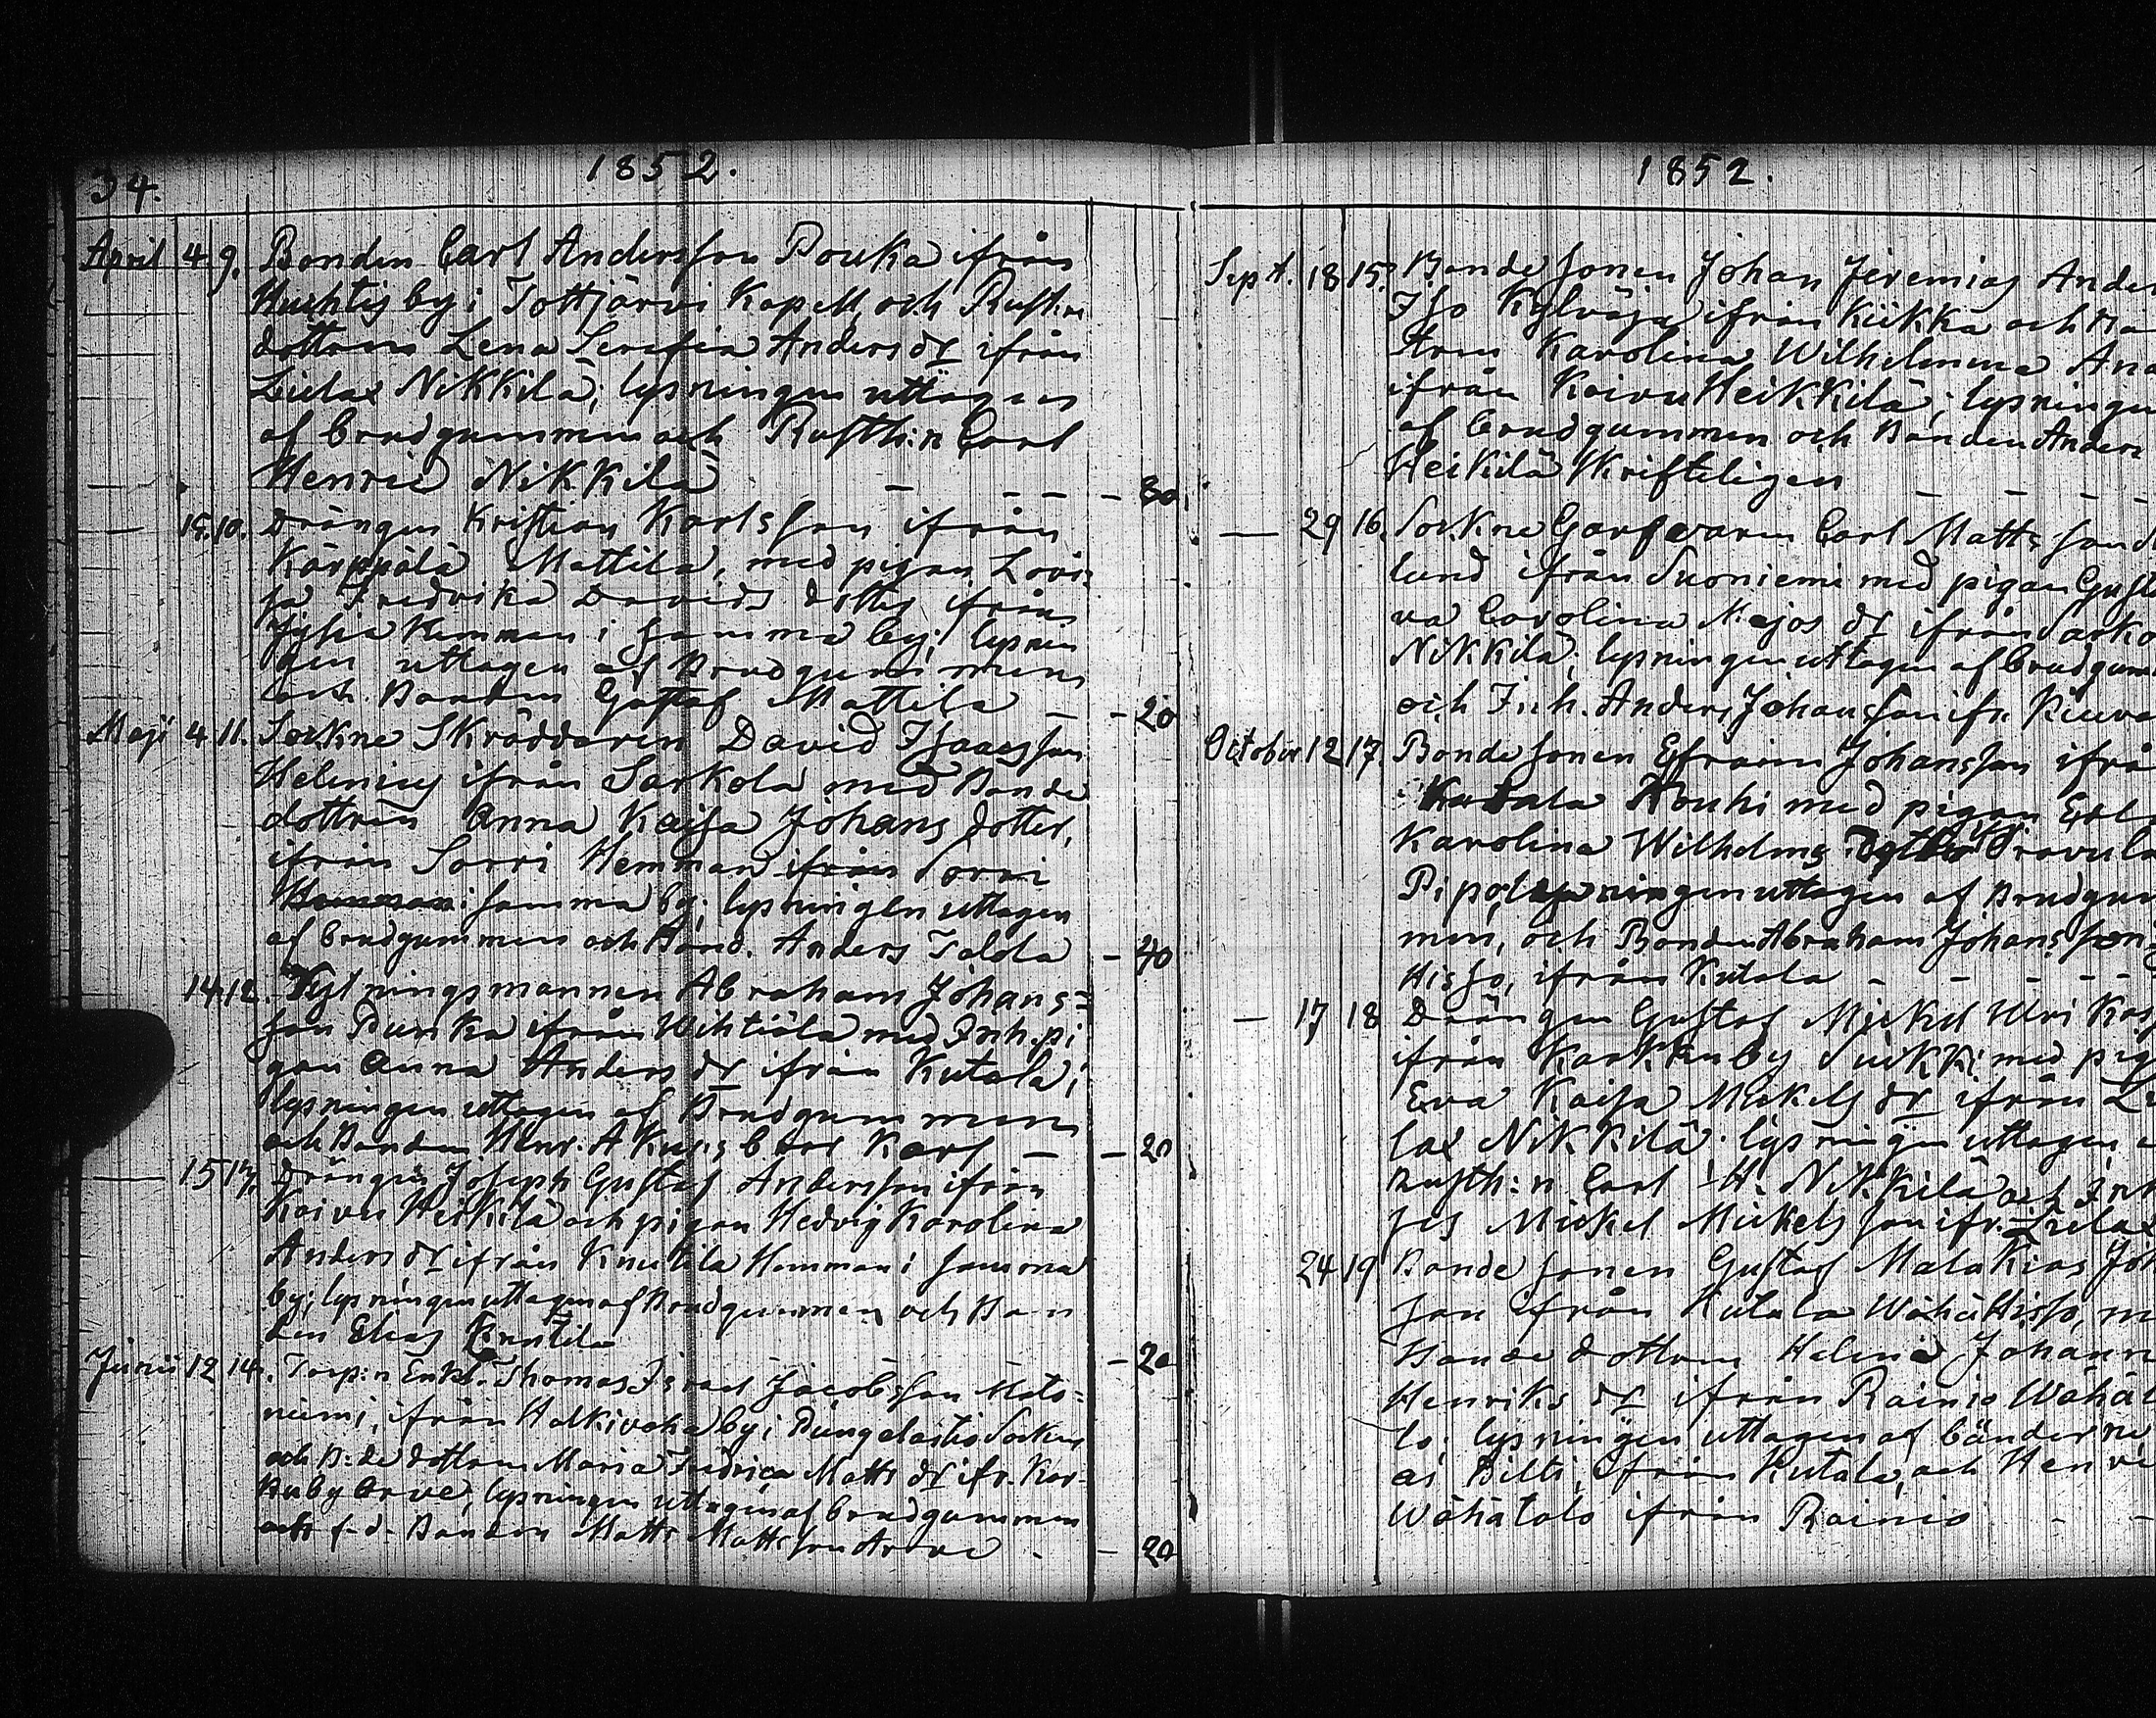 34.
1852.
April 4 9. Bonden Carl Andersson Pouka ifrån
Huhtis by i Tottjärvi Kapell, och Rusth:s
dottren Lena Serefia Anders dr ifrån
Lielax Nikkilä; lysningen uttagen
af brudgummen och Rusth:n Carl
Henric Nikkilä - - - - 80
— 15. 10. Drängen Kristian Karlsson ifrån
Kärppälä Mattila, med pigan Lovi-
sa Fredrika Davids dotter ifrån
Hemman i samma by; lysnin
gen uttagen af Brudgummen
och Bonden Gustaf Mattila - - 20
Maji 4 11. Sockne Skräddaren David Isaacsson
Helenius ifrån Sarkola med Bonde
dottren Anna Kajsa Johans dotter,
ifrån Sorri Hemman ifrån Sorri
Hemman i samma by; lysningen uttagen
af brudgummen och Bond. Anders Talola - 40
14 12. Hyltningsmannen Abraham Johans=
son Punka ifrån Wihtiälä med Inh. pi
gan Anna Anders dr ifrån Kutala;
lysningen uttagen af Brudgummen
och Bonden Henr. A Karl - - 20
— 15 13. Drängen Joseph Gustaf Andersson ifrån
Koivu Heikilä och pigan Hedvig Karolina
Anders dr ifrån Knutila Hemman i samma
by; lysningen uttagen af Brudgummen och Bon
den Elias Knutila - 20
Junii 12 14. Torp:n Enkl. Thomas Israel Jacobsson Mato-
niemi, ifrån Halkivaha by i Pungelaitio Socken
och B:de dottren Maria Fredrica Matts dr ifr. Kar-
ku by Arve, lysningen uttagen af brudgummen
och f.d. Bonden Matts Mattsson Arve - - 20
1852.
Sept. 18 15. Bonde sonen Johan Jeremias Ander
Iso Kylväjä ifrån Kiikka och
tren Karolina Wilhelmina And
ifrån Koivu Heikkilä; lysningen
af brudgummen och Bonden Anders
Heikilä Skrifteligen - - - -
— 29 16. Sockne Garfvaren Carl Matts son
lund ifrån Suoniemi med pigan Gusta
va Carolina Majas dr ifrån Sarko
Nikkilä; lysningen uttagen af brudgum
och Inh. Anders Johansson ifr.
October 12 17. Bonde sonen Efraim Johansson ifrå
Kutala Kouhi med pigan
Karolina Wilhelms dotter
Pipo, lysningen uttagen af Brudgum
men, och Bonden Abraham Johansson
Hisso, ifrån Kutala - - - -
— 17 18 Drängen Gustaf Mickel
ifrån Karkku by med pig
Eva Kaisa Mickels dr ifrån Lie
lax Nikkilä; lysningen uttagen
Rusth:n Carl H. Nikkilä och Inh
Mickel Mickelsson ifr. Lielax
24 19 Bonde sonen Gustaf Malakias Joh
son ifrån Kutala Wähä Hisso, m
Bonde dottren Helena Johann
Henriks dr ifrån Rainio Wähä
lo; lysningen uttagen af bönderne
as Pilti, ifrån Kutala, och Henri
Wähätalo ifrån Rainio - -